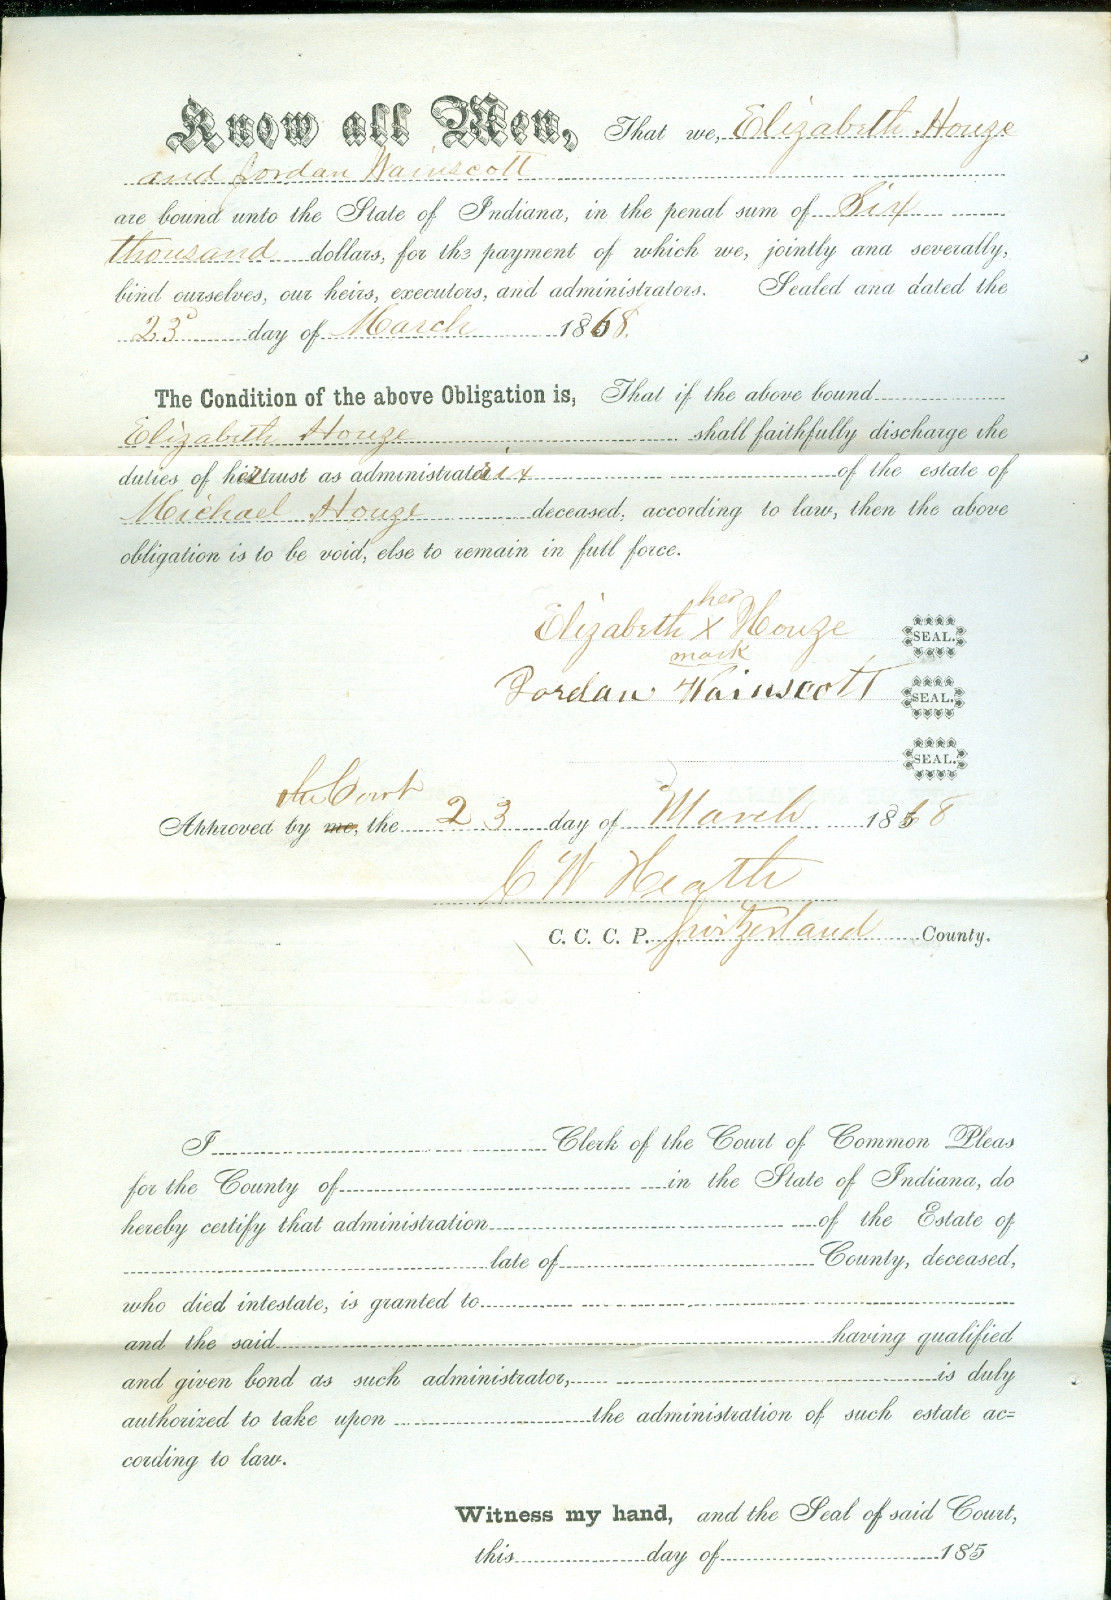 Know all Men, That we, Elizabeth Houze
and Jordan Wainscott
are bound unto the State of Indiana, in the penal sum of Six
thousand dollars, for the payment of which we, jointly and severally,
bind ourselves, our heirs, executors, and administrators. Sealed and dated the
23d day of March 1868.
The Condition of the above Obligation is, That if the above bound
Elizabeth Houze shall faithfully discharge the
duties of her trust as administratrix of the estate of
Michael Houze deceased, according to law, then the above
obligation is to be void, else to remain in full force.
her
Elizabeth X Houze SEAL.
mark
Jordan Wainscott SEAL.
SEAL.
the Court
Approved by me, the 23 day of March 1868
C W Heath
C. C. C. P. Switzerland County.
I Clerk of the Court of Common Pleas
for the County of in the State of Indiana, do
hereby certify that administration of the Estate of
late of County, deceased,
who died intestate, is granted to
and the said having qualified
and given bond as such administrator, is duly
authorized to take upon the administration of such estate ac=
cording to law.
Witness my hand, and the Seal of said Court,
this day of 185